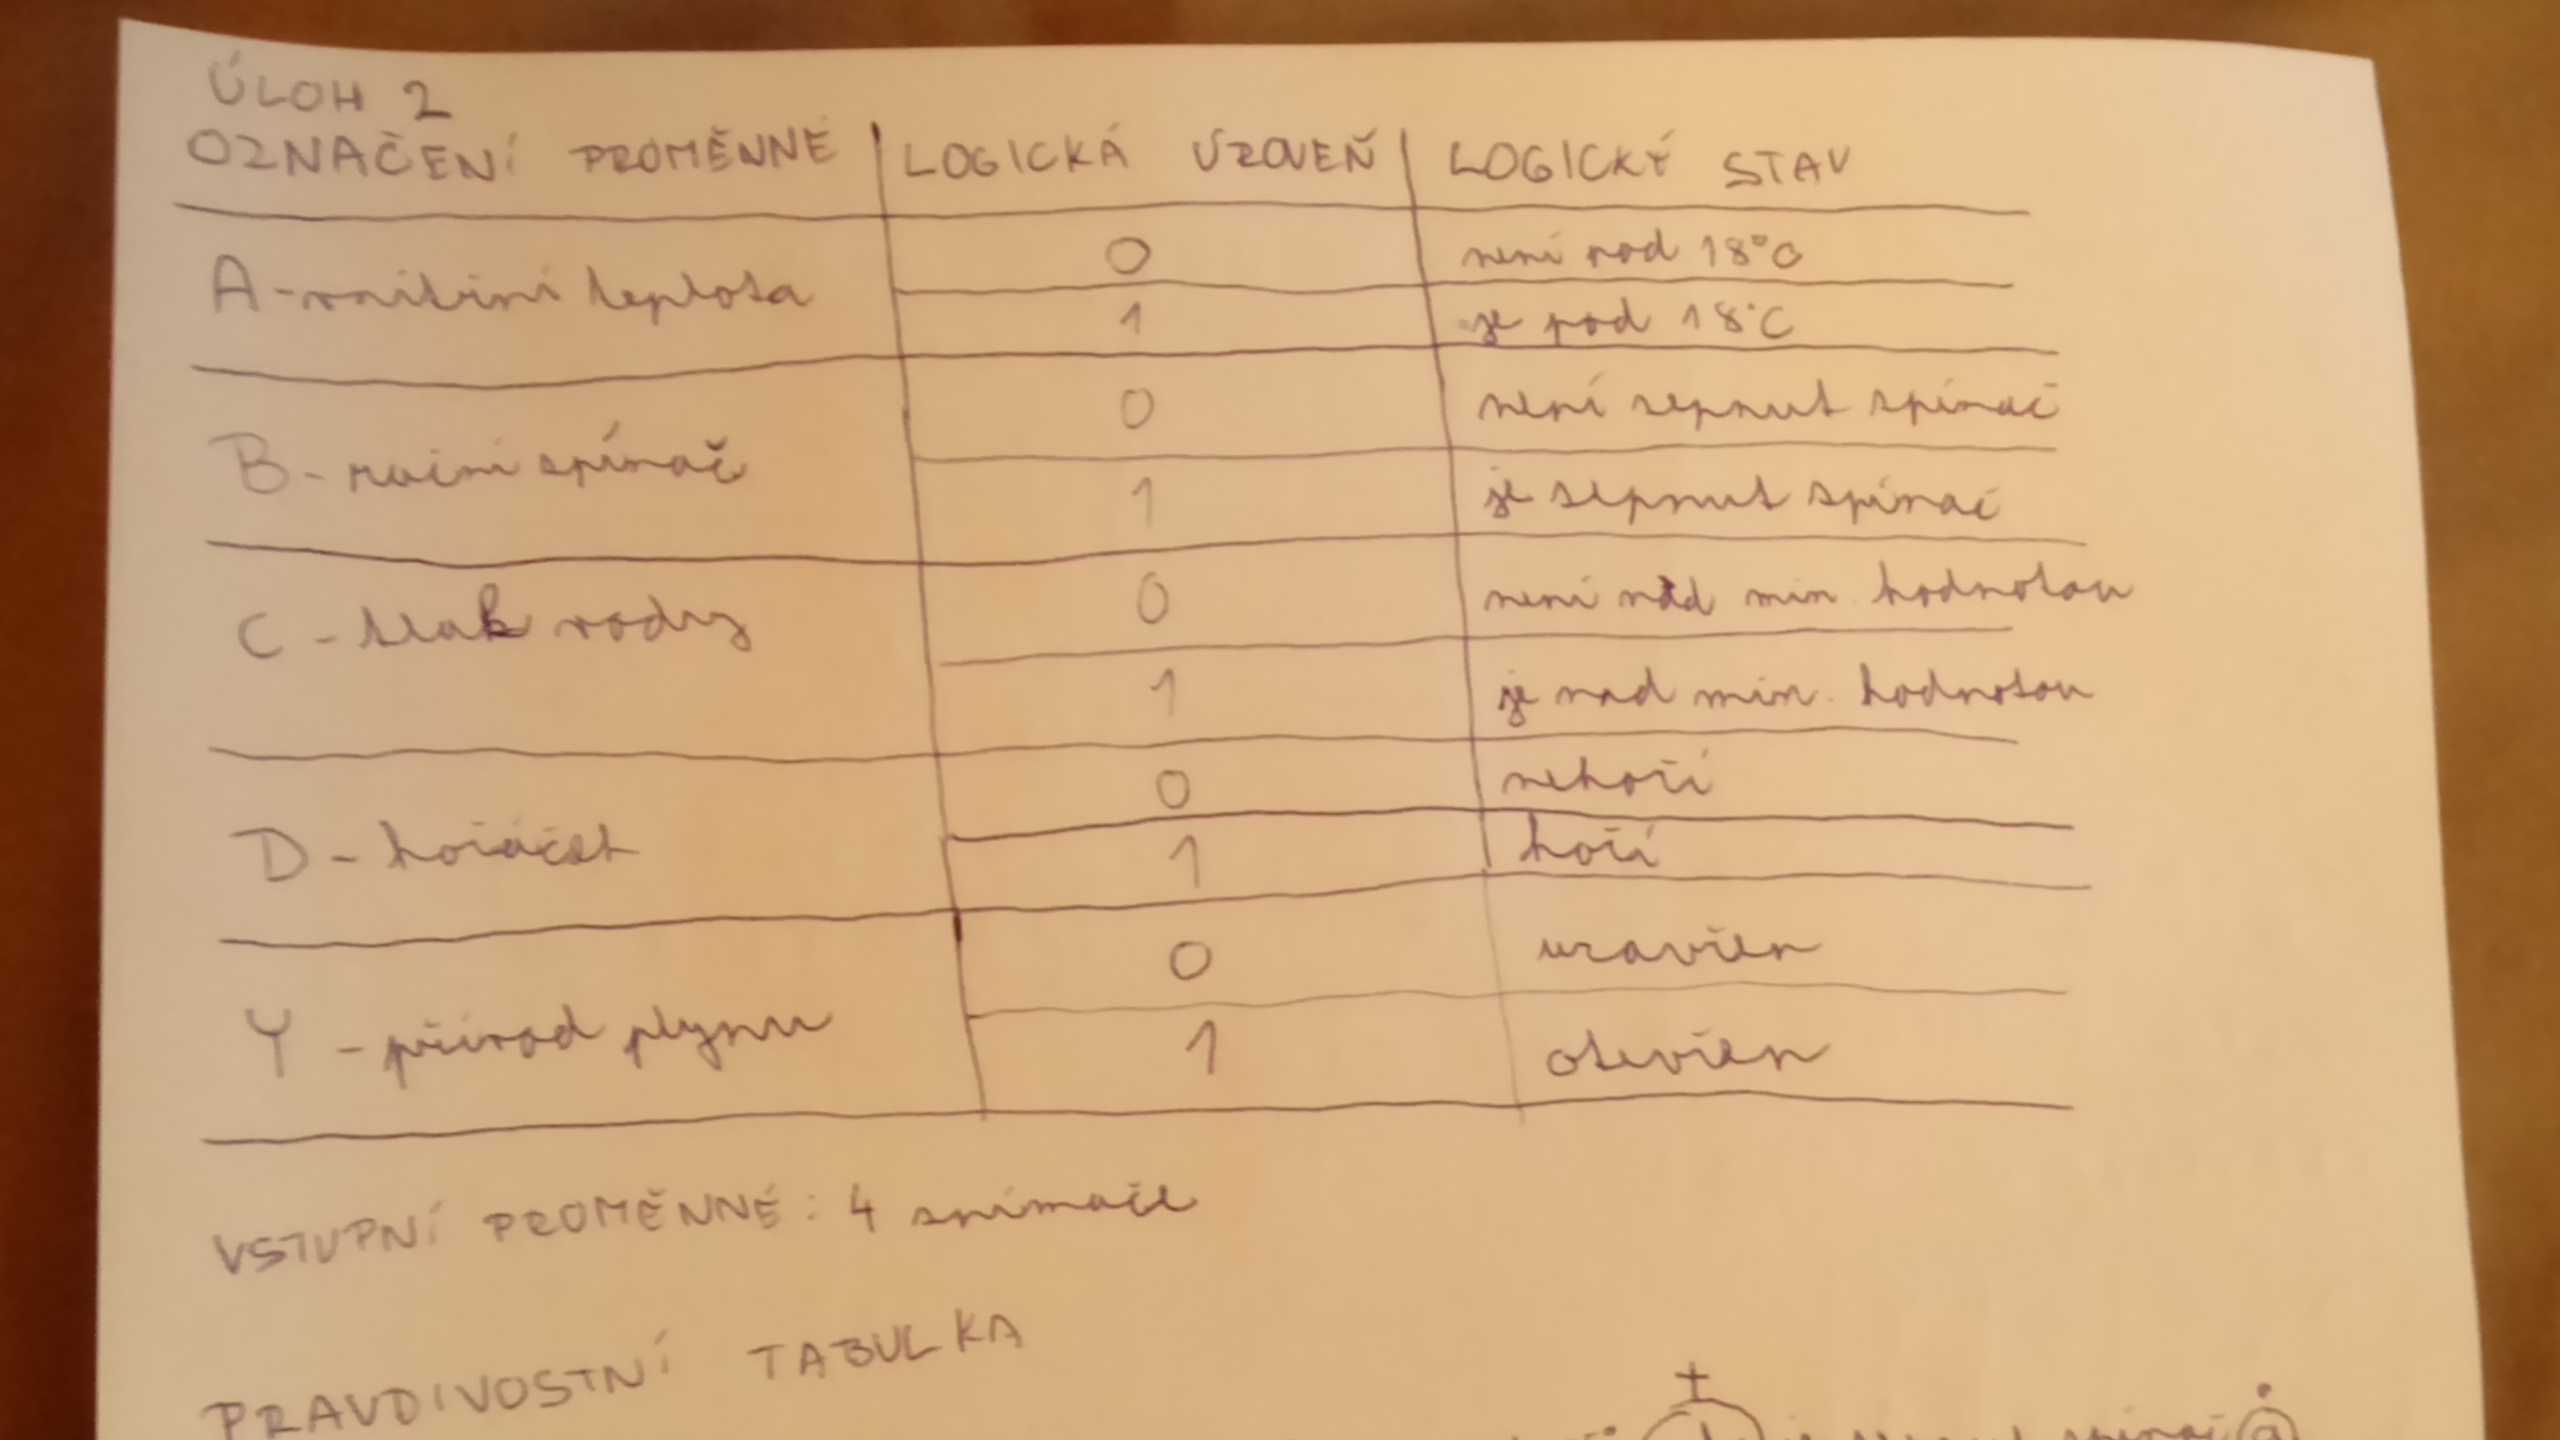 ÚLOH 2
OZNAČENÍ PROMĚNNÉ LOGICKÁ ÚROVEŇ LOGICKÝ STAV
A - vnitřní teplota
0 není pod 18°C
1 je pod 18°C
B - ruční spínač
0 není sepnut spínač
1 je sepnut spínač
C - tlak vody
0 není nad min. hodnotou
1 je nad min. hodnotou
D - hořáček
0 nehoří
1 hoří
Y - přívod plynu
0 uzavřen
1 otevřen
VSTUPNÍ PROMĚNNÉ: 4 snímače
PRAVDIVOSTNÍ TABULKA